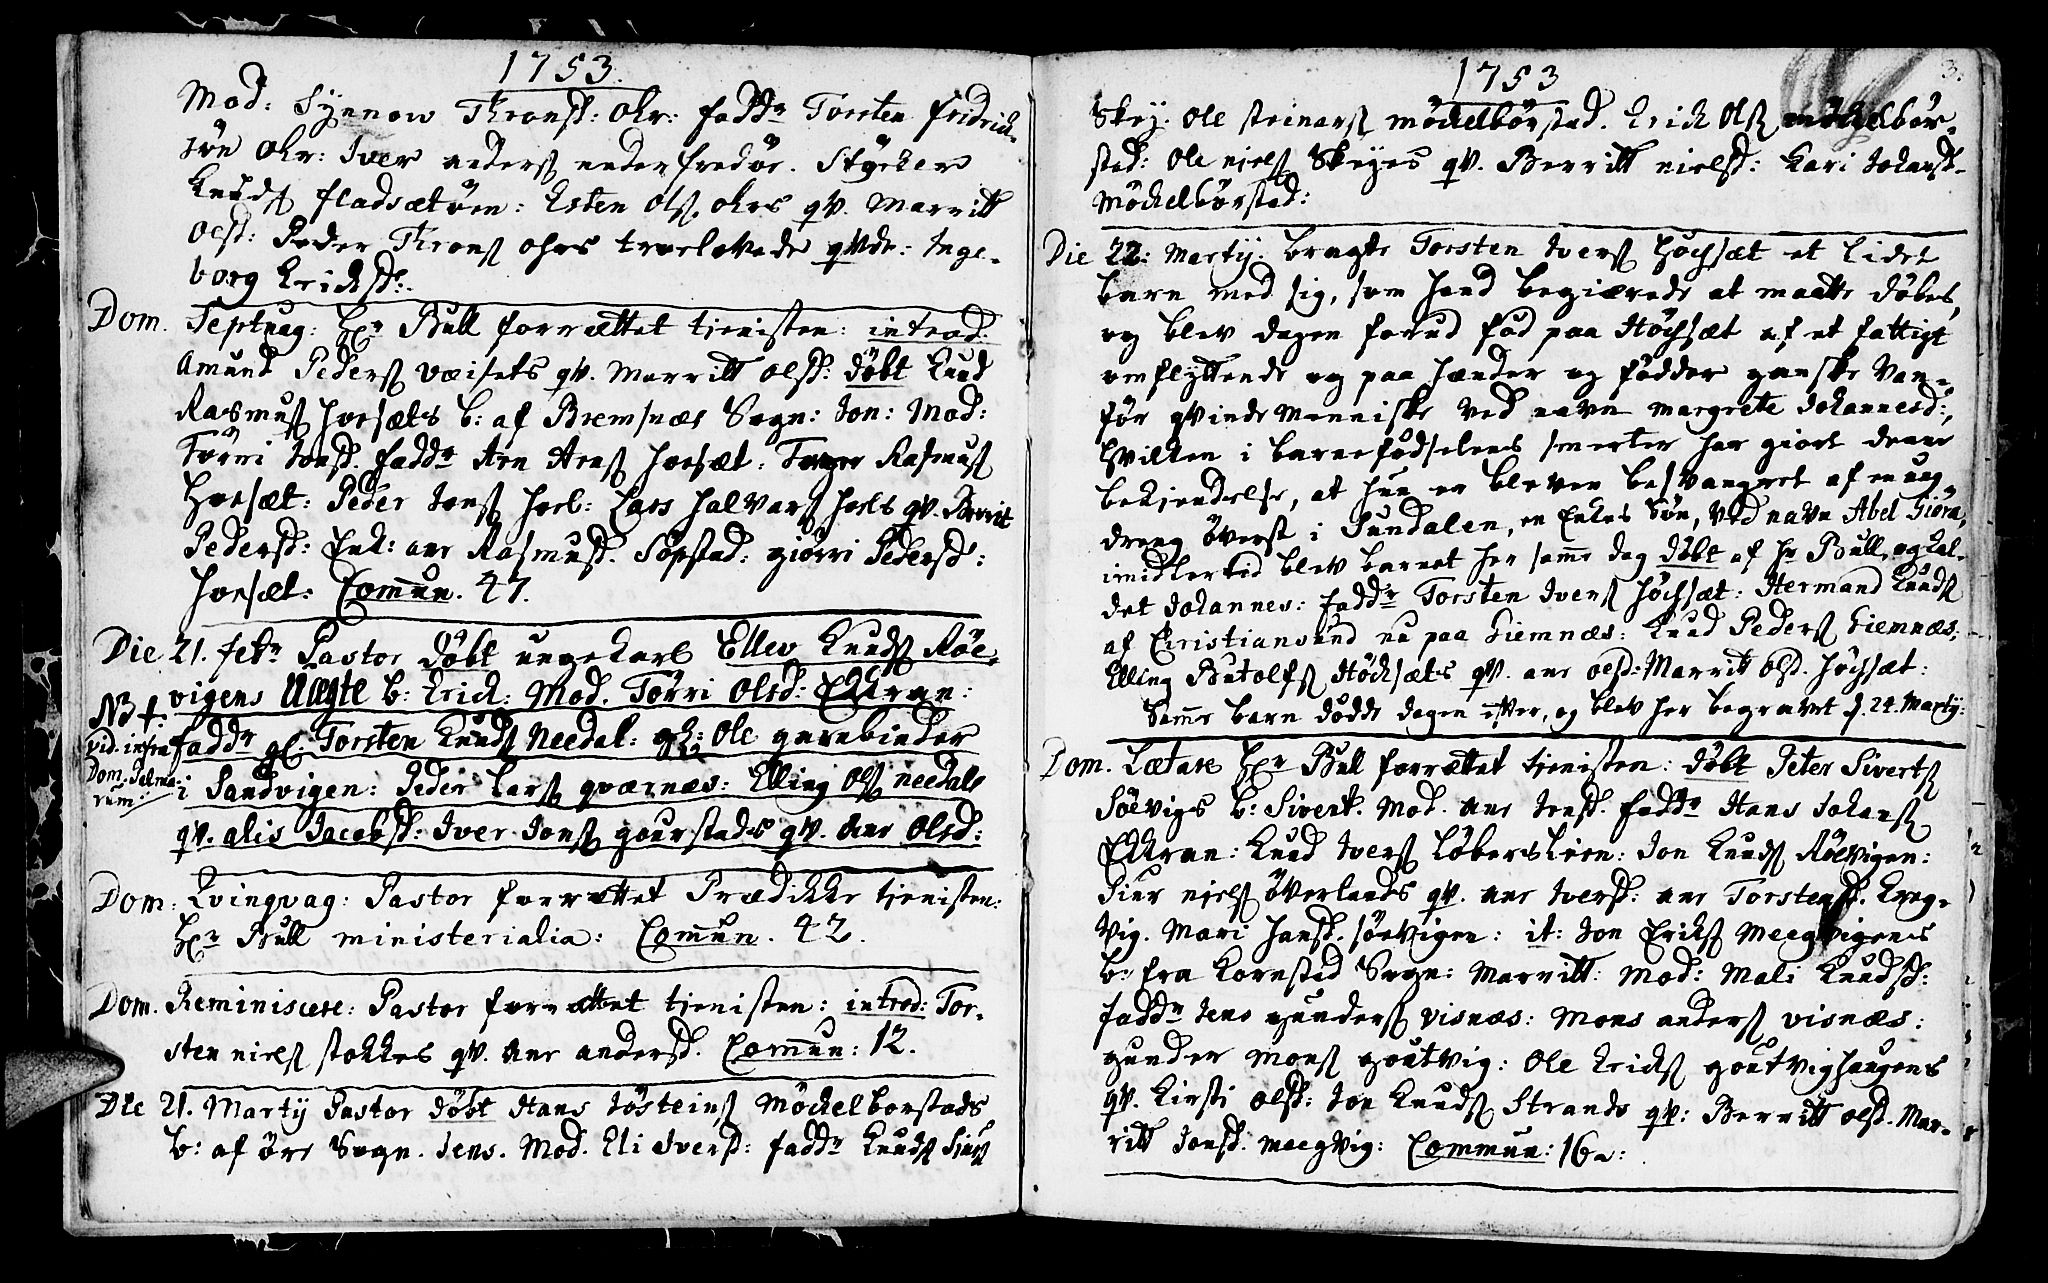 1753.
Mod: Synnow Thronsd: ohr: fadd.r Torsten fridrich-
søn ohr: Iver anders neden fredør. Stÿrcker
knuds fladsætøen: Esten Ols. ohrs qv. Marritt
Oesd: Peder Throns ohrs troelovede qvde: Inge-
borg Ericksd:
Dom. Septuag: Hr. Bull forrettet tjenisten: introd:
Amund Peders væisets qv. Marritt olsd: døbt knud
Rasmus hoesæts b: af Bremsnæs Sogn: Jon: Mod:
Torri Jonsd. fadd.r Arn Arns hoesæt: Rasmus
Hoesæt: Peder Jons hoel: Lars halvars hoels qv. Berrit
Pedersd: Enk: ane Rasmusd. Sopstad: giørri Pedersd:
Hoesæt: Commun. 47.
Die 21. febr. Pastor døbt ungekarl Ellev Knuds Røe-
NB †. vigens Uægte b: Erick: Mod. Torri Olsd: Ekran:
vid. infra fadd.r gl. Torsten Knuds Needal: gl: Ole garnbinder
Dom. Palma-
rum: i Sandvigen: Peder Lars qværnæs: Elling Ols needals
qv. alis Jacobsd: Iver Jons gourstads qv. Ane Olsd:
Dom. Qvinqvag: Pastor forrettet Prædikke tjenisten:
Hr. Bull ministerialia: Commun. 42.
Dom. Reminiscere: Pastor forrettet tjenisten: introd: Tor-
sten niels stokkes qv. Ane andersd. Commun: 12.
Die 21. Martÿ Pastor døbt Hans Jøsteins Møckelborstads
b: af ørs Sogn. Jens. Mod. Eli Iversd: fadd.r Knuds
1753
3.
Skeÿ. Ole steinars møckelbørstad. Erick Ols møckelbør-
stad: Ole niels Skeÿes qv. Berritt nielsd: Kari Johansd-
Møckelbørstad:
Die 22: Martÿ: bragte Torsten Ivers Høchsæt et lidet
barn med sig, som hand begiærede at maatte døbes,
og blev dagen forud fød paa Høchsæt af et fattigt
omflÿttende og paa hænder og fødder ganske Van-
før qvinde Menniske ved navn Margrete Johannesd:,
hvilken i barnefødselens smerter har giort denne
bekiendelse, at hun er bleven besvangret af en ung
dreng øverst i Sundalen, en Enkes Søn, ved navn Abel
imidlertid blev barnet her samme dag døbt af Hr Bull, og kal-
det Johannes: fadd.r Torsten Ivers Høchsæt: Hermand Knuds
af Christiansund nu paa Giemnæs: Knud Peders Giemnæs:
Elling Butolfs Høchsæts qv. ane oesd: Marritt olsd. høchsæt:
Samme barn døde dagen efter, og blev her begravet d. 24. Martÿ:
Dom. Lætare Hr. Bull forrettet tjenisten: døbt Peter Siverts
Søevigs b: Sivert. Mod. Ane Jensd. fadd.r Hans Johans
Ekran: Knud Ivers Løberslien: Jon Knuds Røevigen:
Siur niels øverlands qv. ane Iversd: ane Torstensd.
vig. Mari hansd. søevigen: it: Jon Eriks Meegvigens
b: fra Kornstad Sogn: Marritt: Mod: Mali Knudsd:
fadd.r Jens gunders visnæs: Mons anders visnæs:
gunder Mons goutvig: Ole Ericks goutvighougens
qv. Kirsti olsd: Jon Knuds Strands qv: Berritt olsd. Mar-
ritt Jonsd. meegvig: Commun: 16: